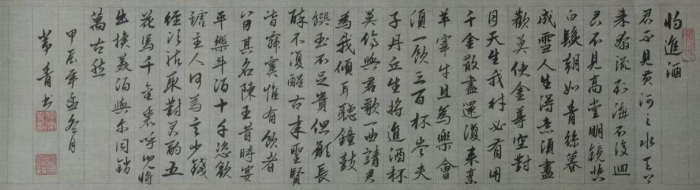 將進酒
君不見黃河之水天上
來奔流到海不復迴
君不見高堂明鏡悲
白髮朝如青絲暮
成雪人生得意須盡
歡莫使金尊空對
月天生我材必有用
千金散盡還復來烹
羊宰牛且為樂會
須一飲三百杯岑夫
子丹丘生將進酒杯
莫停與君歌一曲請君
為我傾耳聽鐘鼓
饌玉不足貴但願長
醉不復醒古來聖賢
皆寂寞惟有飲者
留其名陳王昔時宴
平樂斗酒十千恣歡
謔主人何為言少錢
徑須沽取對君酌五
花馬千金裘呼兒將
出換美酒與爾同銷
萬古愁
甲辰年孟冬月
青書